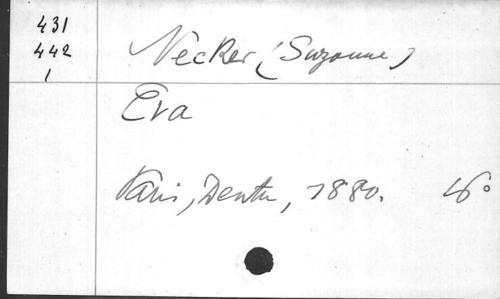 431
442
1
Necker (Suzanne)
Eva
Paris, Dentu, 1880. 16°